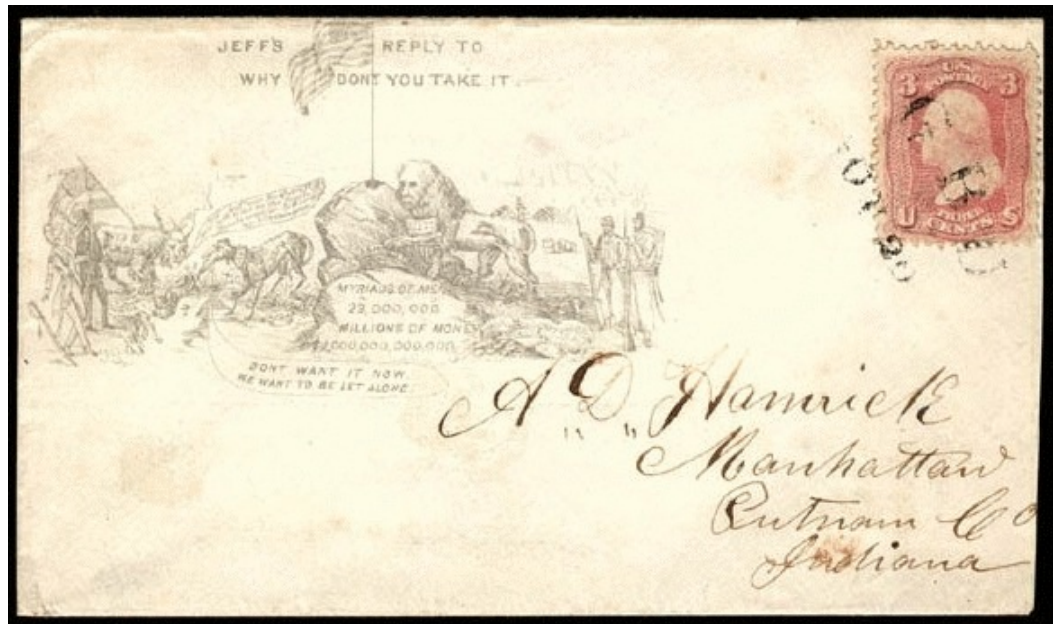 JEFF'S REPLY TO
WHY DONT YOU TAKE IT.
MYRIADS OF MEN
23,000,000
MILLIONS OF MONEY
000,000,000,000
DONT WANT IT NOW.
WE WANT TO BE LET ALONE.
3 U.S. 3
POSTAGE
U THREE S
CENTS
A D Hamrick
Manhattan
Putnam Co
Indiana